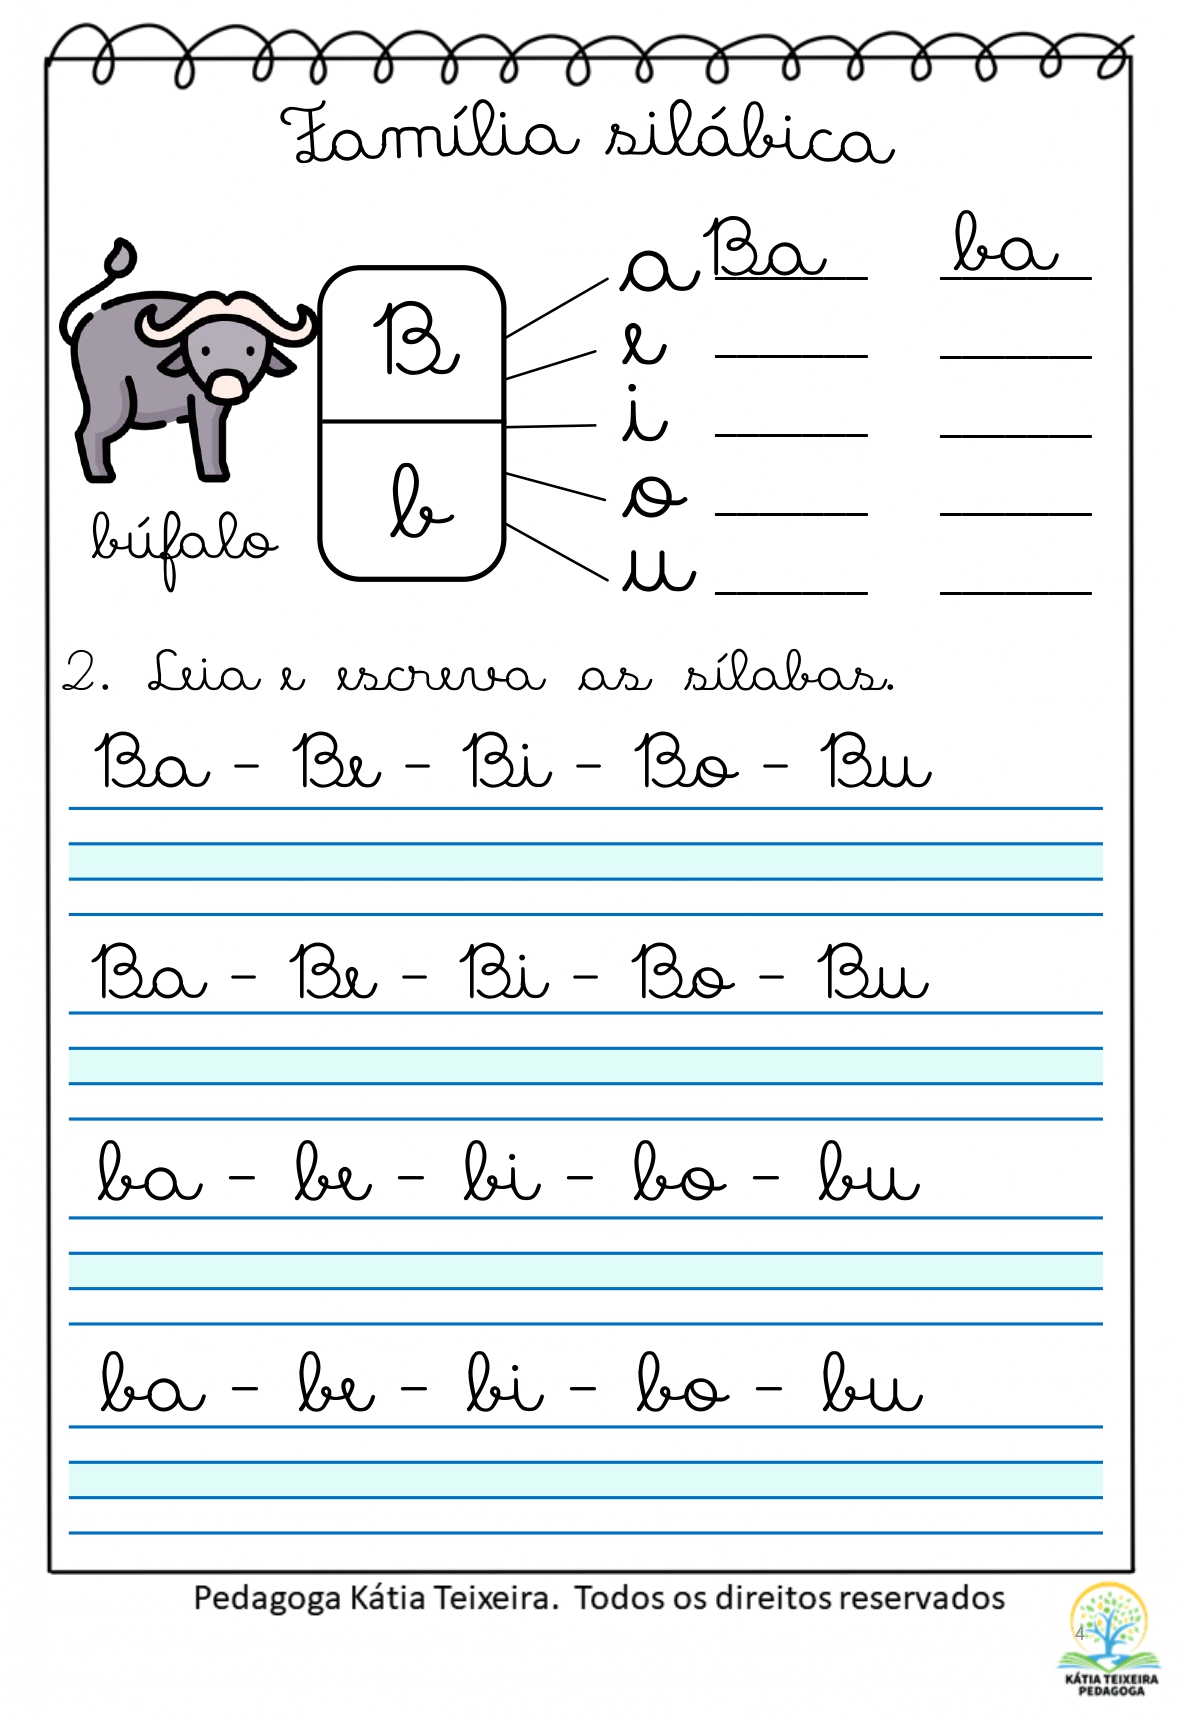 Família silábica
B
b
búfalo
a Ba ba
e
i
o
u
2. Leia e escreva as sílabas.
Ba - Be - Bi - Bo - Bu
Ba - Be - Bi - Bo - Bu
ba - be - bi - bo - bu
ba - be - bi - bo - bu
Pedagoga Kátia Teixeira. Todos os direitos reservados
4
KÁTIA TEIXEIRA
PEDAGOGA